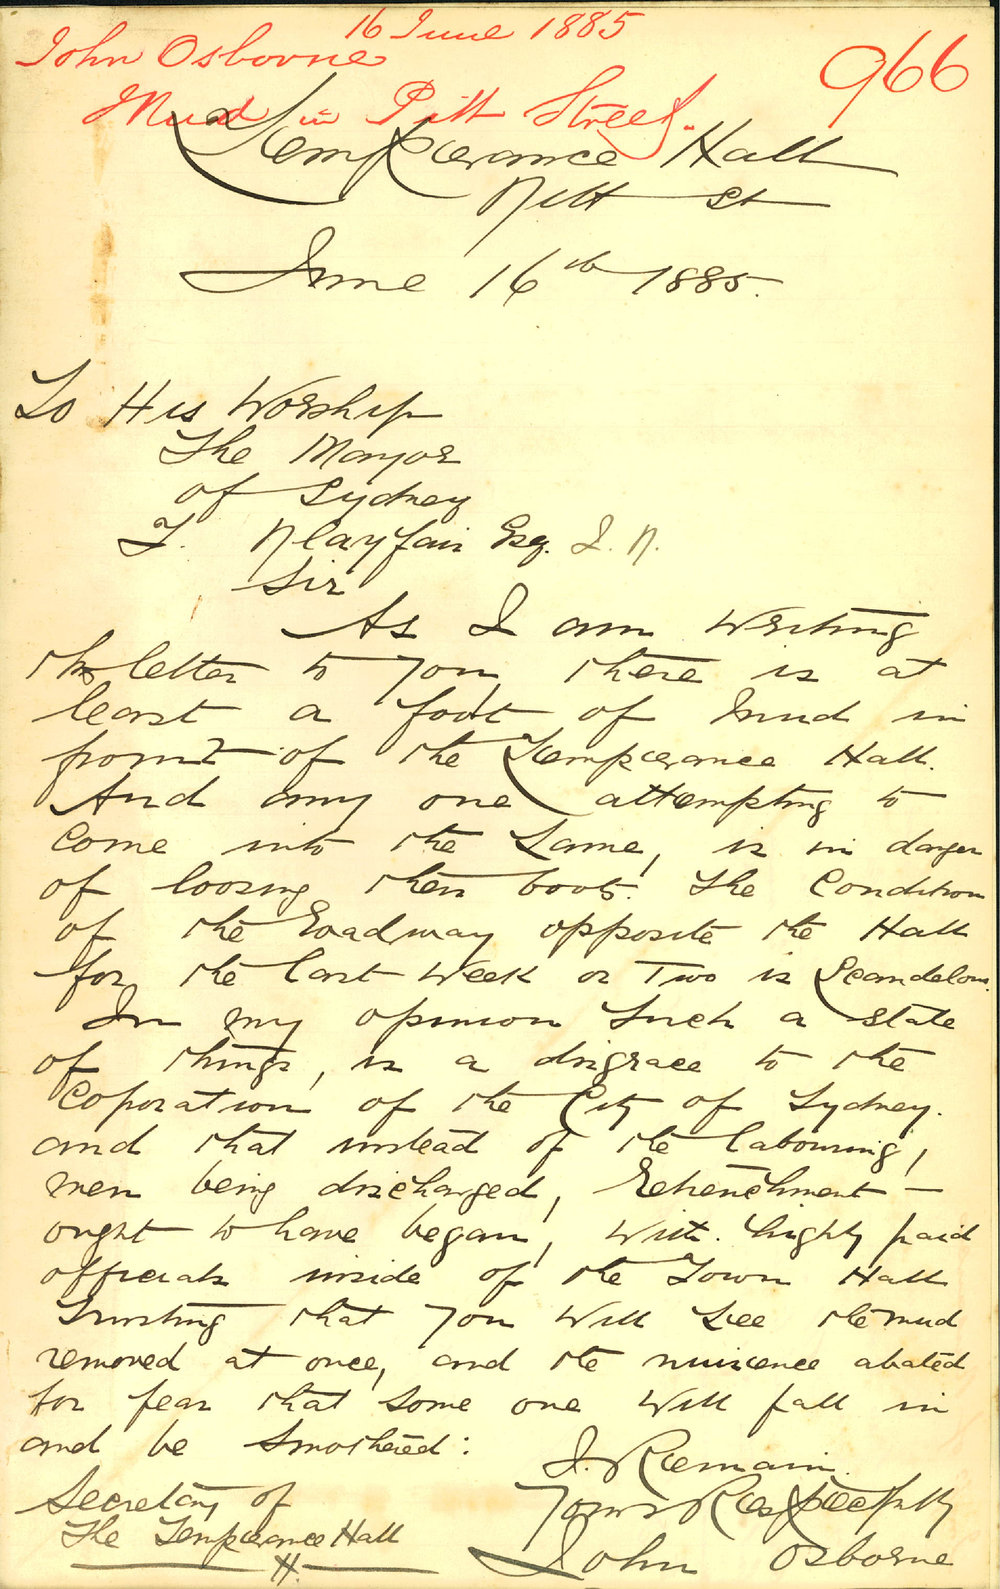 16 June 1885
John Osborne
966
Mud in Pitt Street.
Temperance Hall
Pitt St
June 16th 1885.
To His Worship
The Mayor
of Sydney
T. Playfair Esq. J. P.
Sir
As I am Writing
this letter to you, there is at
least a foot of Mud in
front of the Temperance Hall.
And any one attempting to
Come into the Same, is in danger
of loosing their boots. The Condition
of the Roadway opposite the Hall
for the last Week or Two is Scandelous.
In my opinion Such a state
of things, is a disgrace to the
Coporation of the City of Sydney.
and that instead of the labouring,
men being discharged, Retrenchment —
ought to have began, With. highly paid
officials inside of the Town Hall
Trusting that you Will See the mud
removed at once, and the nuicence abated
for fear that Some one Will fall in
and be Smothered:
I. Remain.
Yours Respectfully
John Osborne
Secretary of
The Temperance Hall
H.